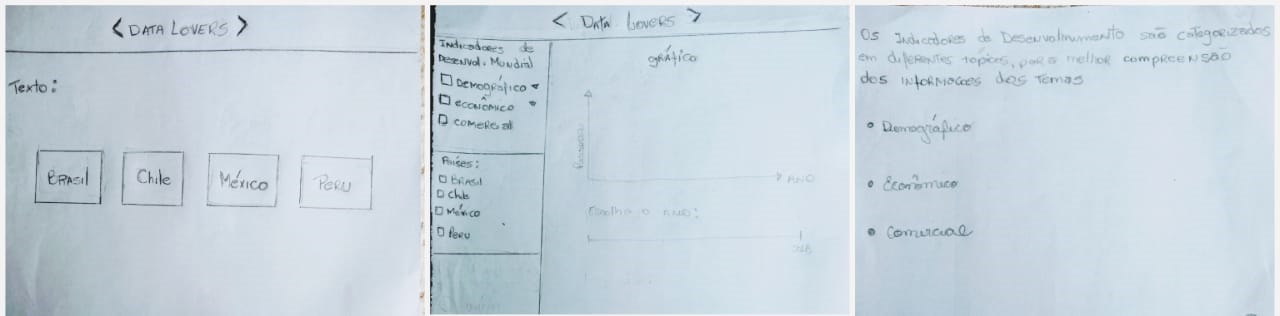 < DATA LOVERS >
Texto:
BRASIL
Chile
México
PERU
< DATA LOVERS >
Indicadores de
Desenvol. Mundial
DEMOGRÁFICO
ECONÔMICO
COMERCIAL
gráfico
ANO
Países:
BRASIL
Chile
México
PERU
Escolha o ANO:
Os Indicadores de Desenvolvimento são categorizados
em diferentes tópicos, para melhor compreensão
das informações dos temas
• Demográfico
• Econômico
• Comercial